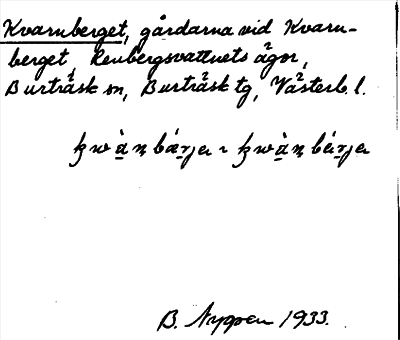 Kvarnberget, gårdarna vid Kvarn-
berget, Renbergsvattnets ägor,
Burträsk sn, Burträsk tg, Västerb. l.
B. Nyppen 1933.